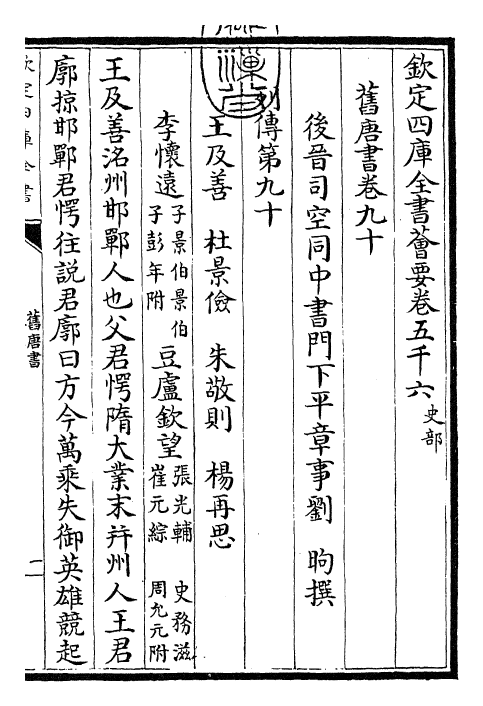 欽定四庫全書薈要卷五千六 史部
舊唐書卷九十
後晉司空同中書門下平章事劉昫撰
列傳第九十
王及善 杜景儉 朱敬則 楊再思
李懷遠 子景伯 景伯子彭年附 豆盧欽望 張光輔 史務滋 崔元綜 周允元附
王及善洺州邯鄲人也父君愕隋大業末并州人王君
廓掠邯鄲君愕往説君廓曰方今萬乘失御英雄競起
欽定四庫全書
舊唐書
二